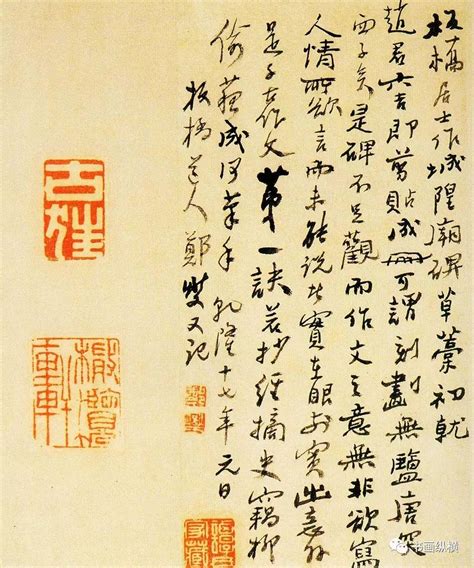 板橋居士作城隍廟碑草藁初就
趙君六吉即剪貼成冊可謂刻畫無鹽唐突
西子矣是碑不足觀而作文之意無非欲寫
人情所欲言而未能說者實在眼前實出意外
是千古作文第一訣若抄經摘史竊柳
偷蘇成何筆手乾隆十七年元日
板橋道人鄭燮又記
书画纵横